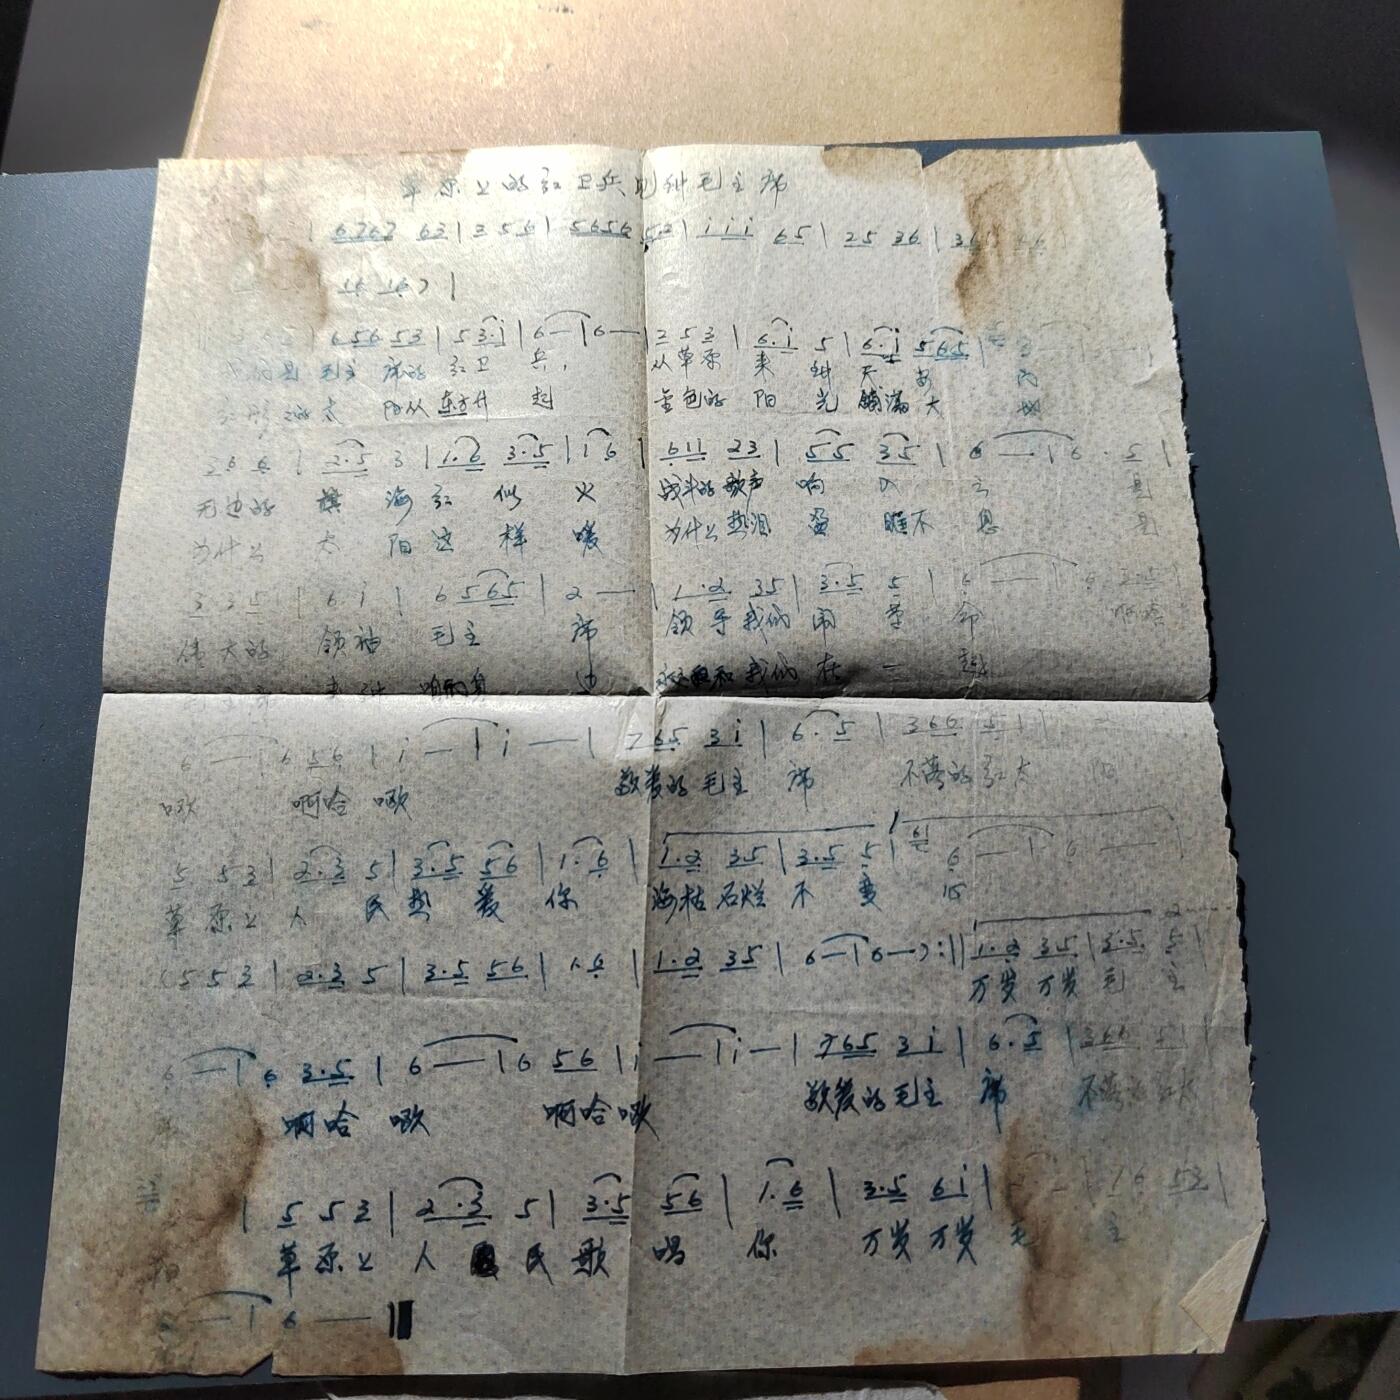 草原上的红卫兵见到毛主席
| 6767 63 | 3 5 6 | 5656 53 | i i i 65 | 25 36 | 36
16 16 ) |
656 53 | 5 3·i | 6 — | 6 — | 3 5 3 | 6·i 5 | 6·i 565 |
毛主 席的 红卫 兵, 从草原 来 到 天 安 门
太 阳从 东方升 起 金色的 阳 光 铺满 大 地
3 6 6 | 2·5 3 | 1·2 3·5 | 1 6 | 611 23 | 55 35 | 6 — | 6 · 5 |
无边的 旗 海 红 似 火 战斗的 歌声 响 入 云 是
为什么 太 阳 这 样 暖 为什么 热泪 盈 眶不 息 是
3 3 5 | 6 i | 6 565 | 2 — | 1·2 35 | 3·5 5 | 6 — | 6 3·5
伟大的 领袖 毛主 席 领导 我们 闹 革 命 啊哈
来到 咱们身 边 和我们 在 一 起
6 — | 6 56 | i — | i — | 765 3i | 6·5 | 366 5 |
嗽 啊哈 嗽 敬爱的 毛主 席 不落的 红太 阳
5 53 | 2·3 5 | 3·5 56 | 1·6 | 1·2 35 | 3·5 5 | 6 — | 6 —
草原上 人 民 热 爱 你 海枯 石烂 不 变 心
(5 5 3 | 2·3 5 | 3·5 56 | 1·6 | 1·2 35 | 6 — | 6 —) :‖ 1·2 35 | 3·5 5 |
万岁 万岁 毛 主
6 — | 6 3·5 | 6 — | 6 56 | i — | i — | 765 3i | 6·5 | 366 5 |
啊哈 嗽 啊哈 嗽 敬爱的 毛主 席 不落的 红太
阳
| 5 5 3 | 2·3 5 | 3·5 56 | 1·6 | 3·5 6i | 16 53 |
草原上 人 民 歌 唱 你 万岁 万岁 毛 主
6 — ‖